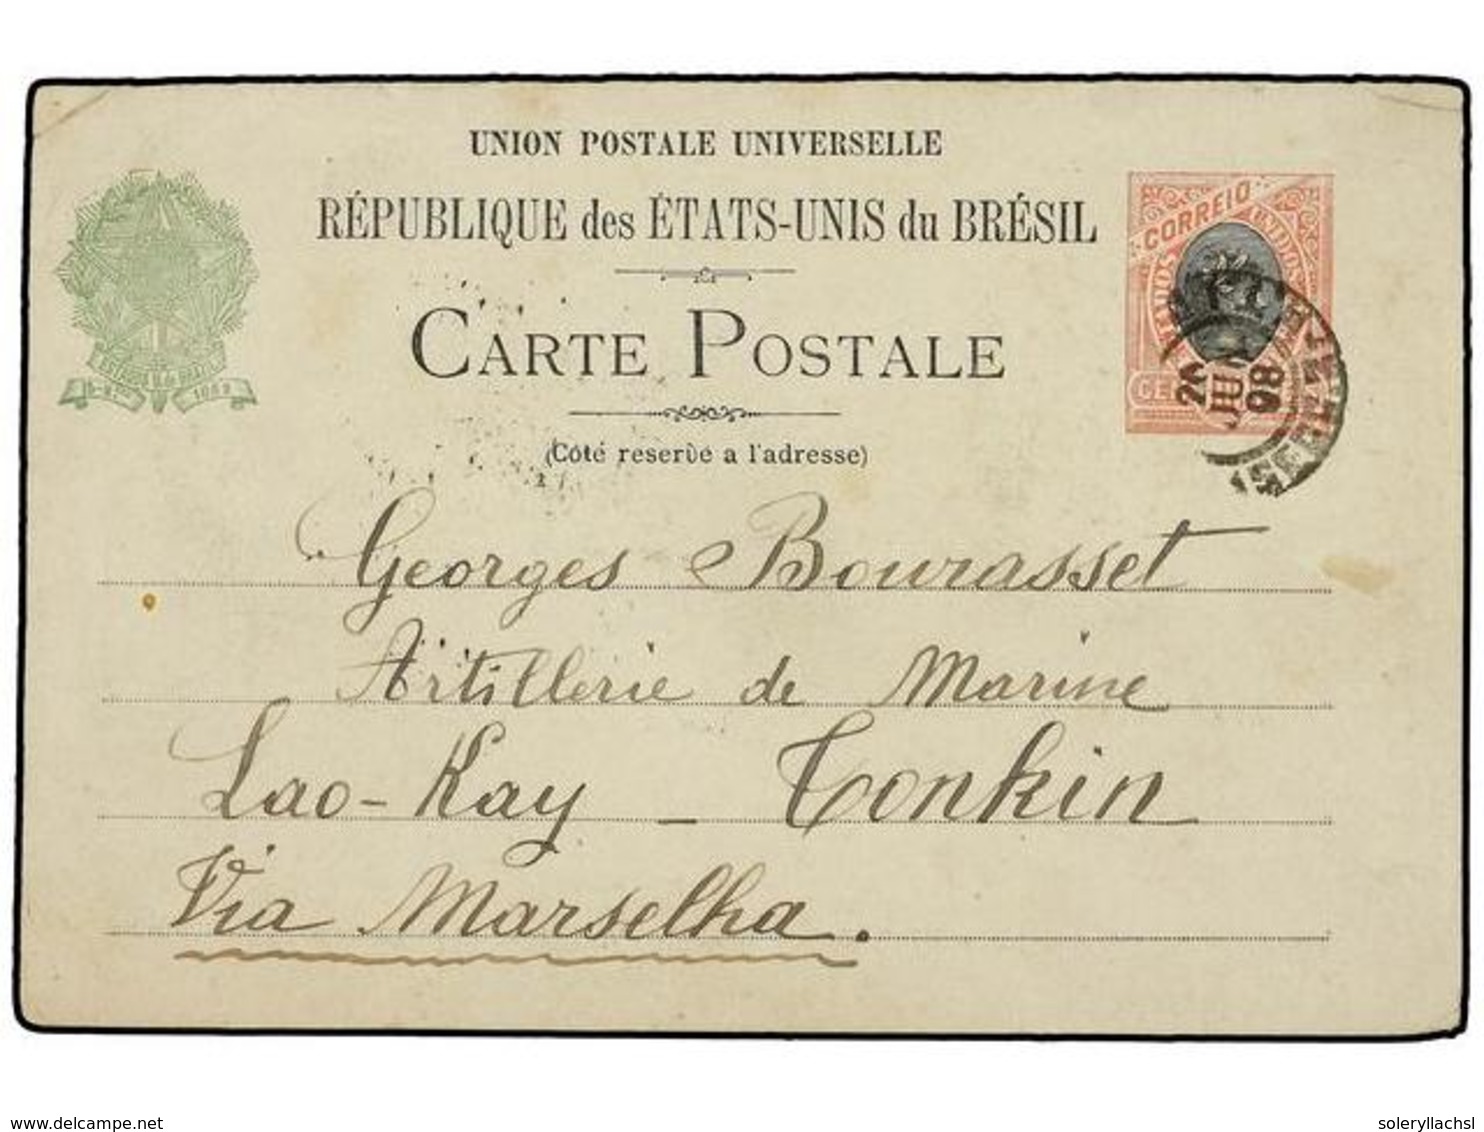 UNION POSTALE UNIVERSELLE
RÉPUBLIQUE des ÉTATS-UNIS du BRÉSIL
CARTE POSTALE
(Côté reservé a l'adresse)
CORREIO
UNIDOS
20
JUN
98
1889
Georges Bourasset
Artillerie de Marine
Lao-Kay _ Tonkin
Via Marselha.
delcampe.net
soleryllachsl